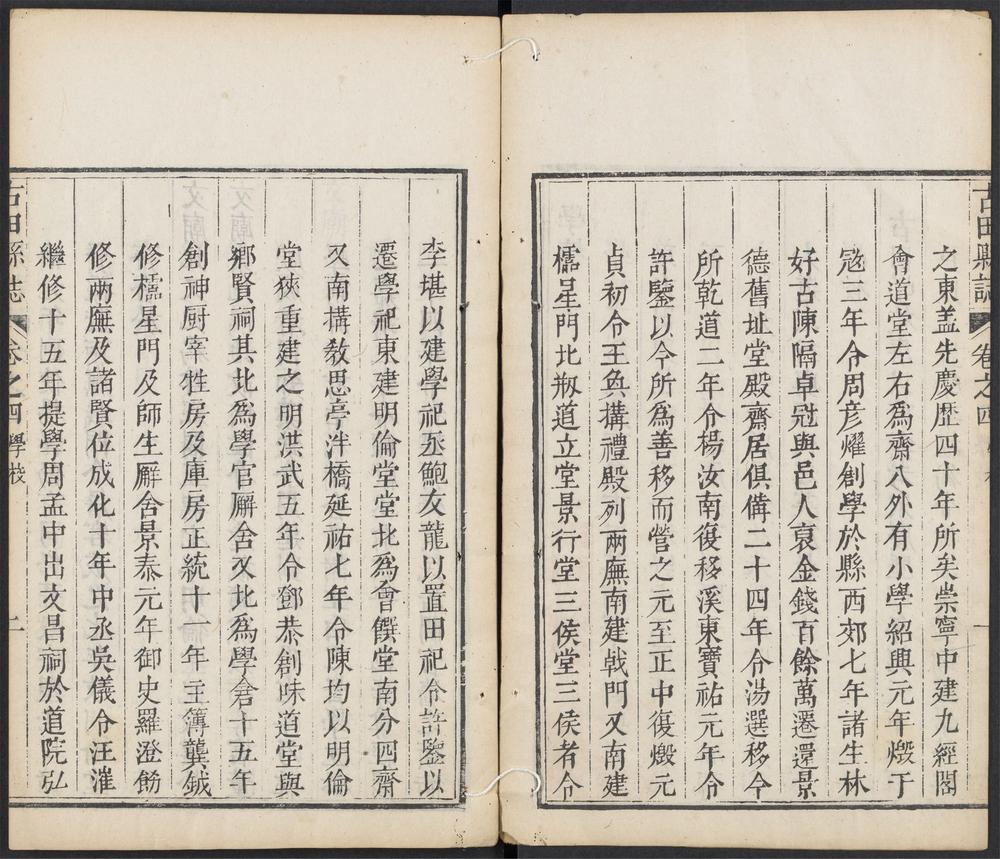 古田縣誌 卷之四
之東盖先慶歷四十年所矣崇寧中建九經閣
會道堂左右爲齋八外有小學紹興元年燬于
寇三年令周彦燿創學於縣西郊七年諸生林
好古陳隔卓冠與邑人裒金錢百餘萬遷還景
德舊址堂殿齋居俱備二十四年令湯選移今
所乾道二年令楊汝南復移溪東寶祐元年令
許鑒以今所爲善移而營之元至正中復燬元
貞初令王奐搆禮殿列兩廡南建戟門又南建
櫺星門北剏道立堂景行堂三侯堂三侯者令
李堪以建學祀丞鮑友龍以置田祀令許鑒以
遷學祀東建明倫堂堂北爲會饌堂南分四齋
又南搆敎思亭泮橋延祐七年令陳均以明倫
堂狹重建之明洪武五年令鄧恭創味道堂與
鄉賢祠其北爲學官廨舍又北爲學倉十五年
創神厨宰牲房及庫房正統十一年主簿龔鉞
修櫺星門及師生廨舍景泰元年御史羅澄飭
修兩廡及諸賢位成化十年中丞吳儀令汪漼
繼修十五年提學周孟中出文昌祠於道院弘
古田縣誌 卷之四 學校 二